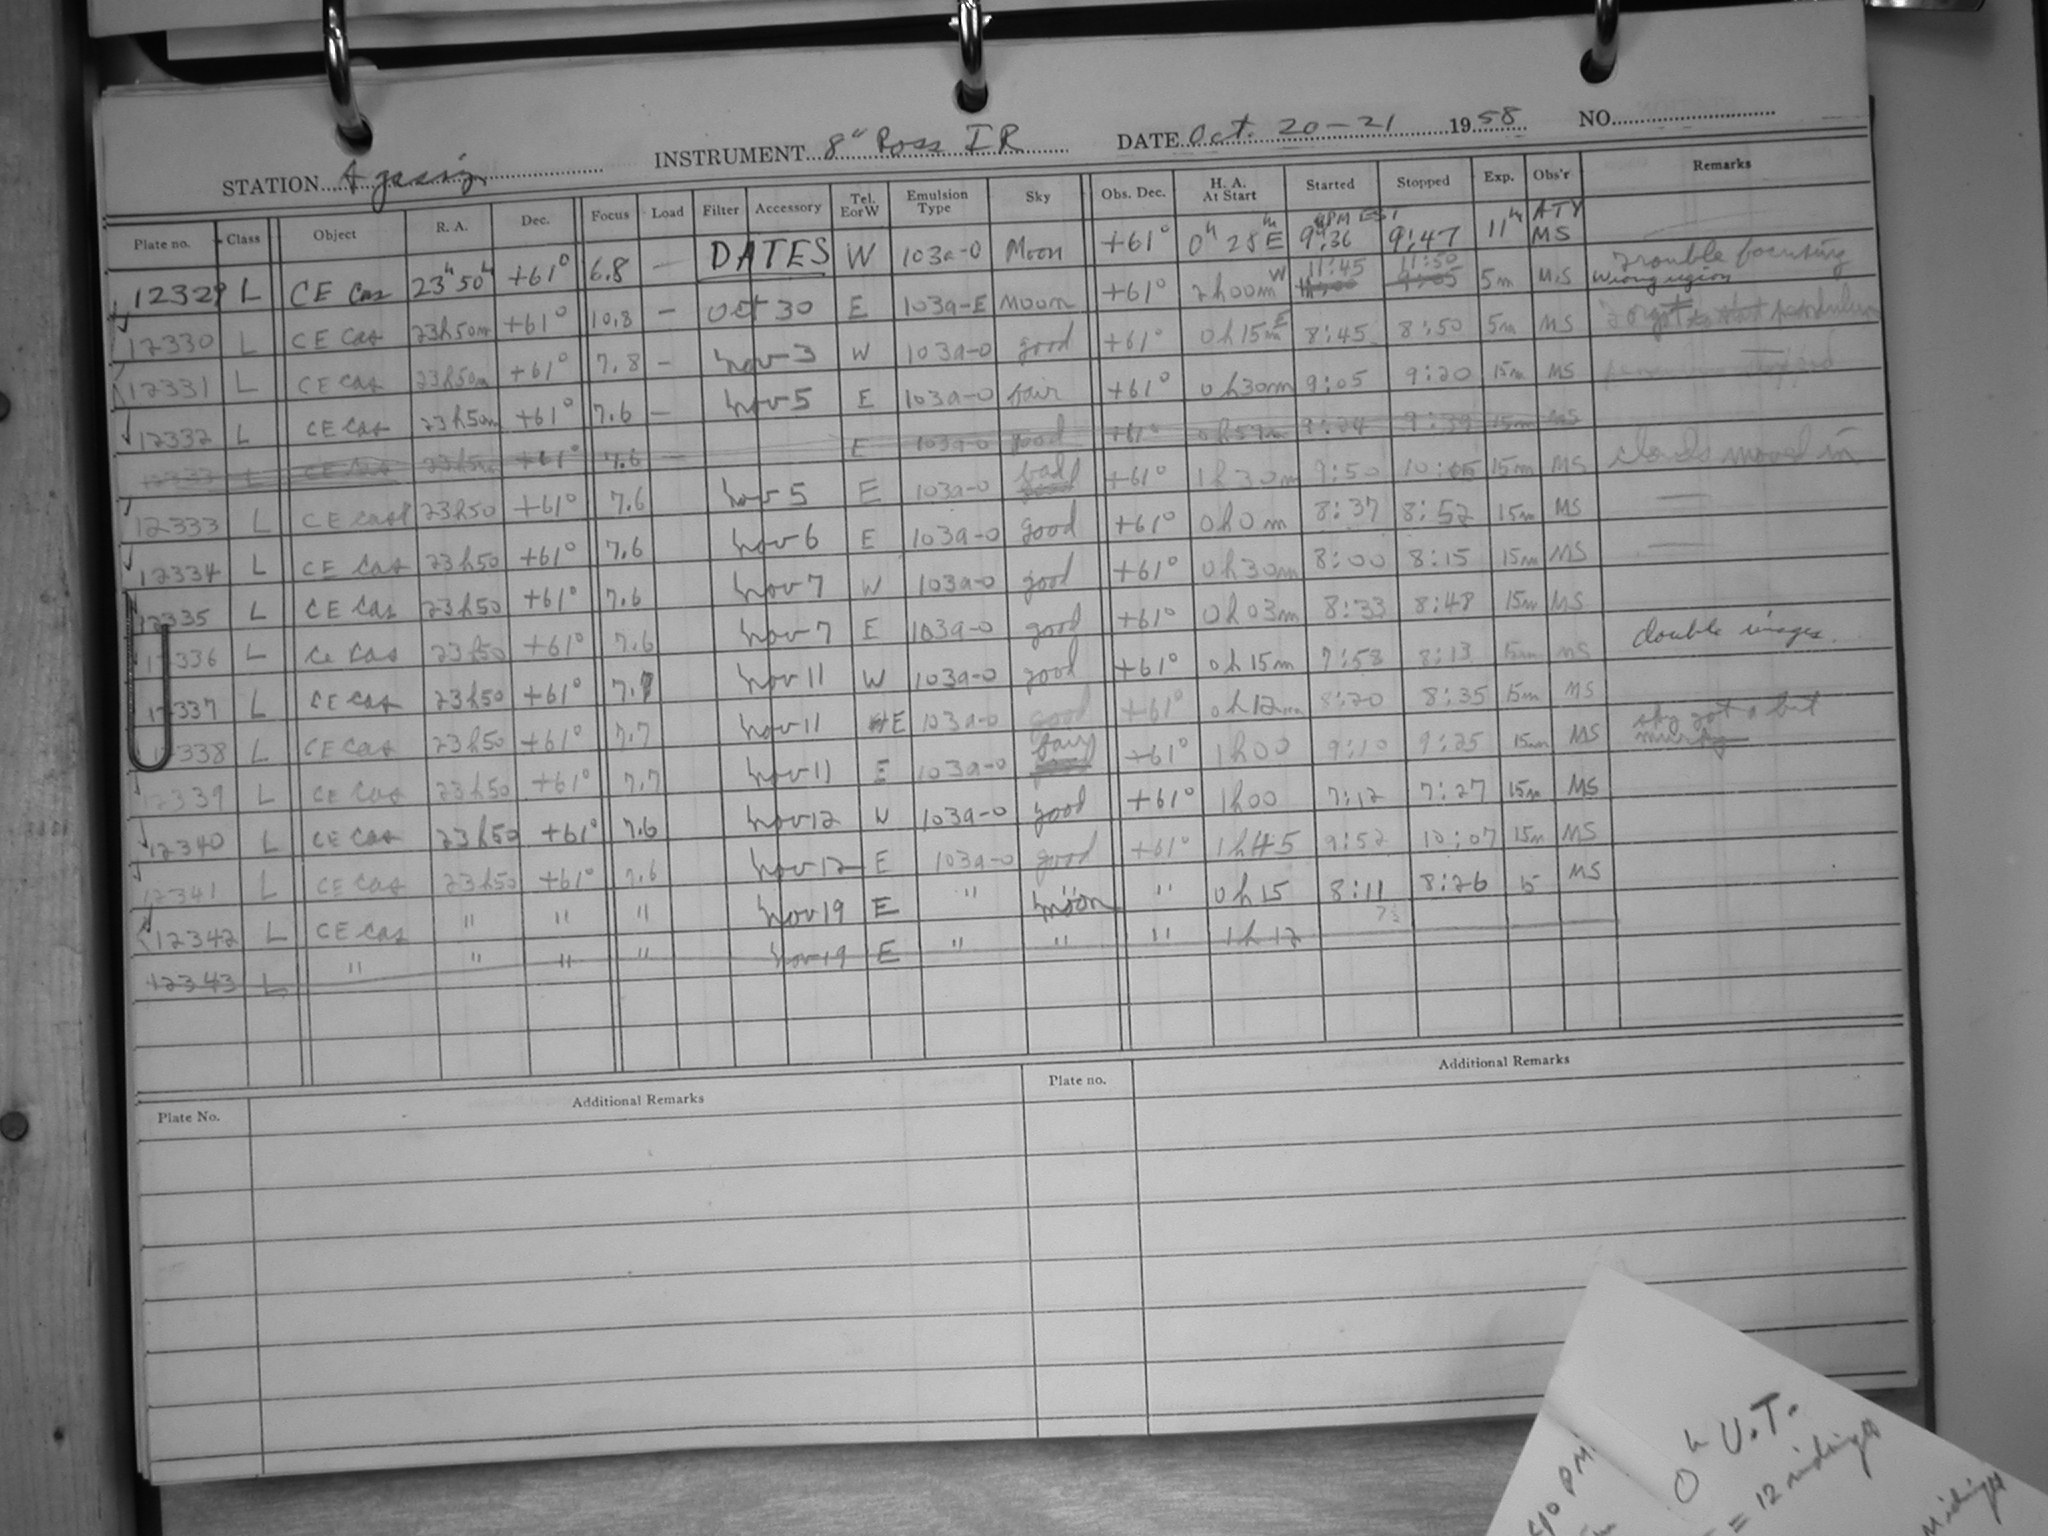 STATION Agassiz INSTRUMENT 8" Ross IR DATE Oct. 20-21 1958 NO.
Plate no. Class Object R. A. Dec. Focus Load Filter Accessory Tel. E or W Emulsion Type Sky Obs. Dec. H. A. At Start Started Stopped Exp. Obs'r Remarks
12329 L CE Cas 23h 50m +61° 6.8 — DATES W 103a-O Moon +61° 0h 28m E PM EST 9:36 9:47 11m ATY MS
12330 L CE Cas 23h50m +61° 10.8 — Oct 30 E 103a-E Moon +61° 2h00m W 11:45 11:50 5m MS Trouble focusing Wrong region
12331 L CE Cas 23h50m +61° 7.8 — Nov 3 W 103a-O good +61° 0h15m E 8:45 8:50 5m MS
12332 L CE Cas 23h50m +61° 7.6 — Nov 5 E 103a-O fair +61° 0h30m 9:05 9:20 15m MS
12333 L CE Cas 23h50m +61° 7.6 — E 103a-O good +61° 0h59m 9:24 9:39 15m
12333 L CE Cas 23h50 +61° 7.6 Nov 5 E 103a-O bad good +61° 1h30m 9:50 10:05 15m MS clouds moved in
12334 L CE Cas 23h50 +61° 7.6 Nov 6 E 103a-O good +61° 0h0m 8:37 8:52 15m MS —
12335 L CE Cas 23h50 +61° 7.6 Nov 7 W 103a-O good +61° 0h30m 8:00 8:15 15m MS —
12336 L Ce Cas 23h50 +61° 7.6 Nov 7 E 103a-O good +61° 0h03m 8:33 8:48 15m MS
12337 L CE Cas 23h50 +61° 7.7 Nov 11 W 103a-O good +61° 0h15m 7:58 8:13 15m MS double images
12338 L CE Cas 23h50 +61° 7.7 Nov 11 E 103a-O good +61° 0h12m 8:20 8:35 15m MS
12339 L CE Cas 23h50 +61° 7.7 Nov 11 E 103a-O fair +61° 1h00 9:10 9:25 15m MS sky got a bit murky
12340 L CE Cas 23h50 +61° 7.6 Nov 12 W 103a-O good +61° 1h00 7:12 7:27 15m MS
12341 L CE Cas 23h50 +61° 7.6 Nov 12 E 103a-O good +61° 1h45 9:52 10:07 15m MS
12342 L CE Cas " " " Nov 19 E " moon " 0h15 8:11 8:26 15 MS
12343 L " " " " Nov 19 E " " " 1h12
Plate No. Additional Remarks Plate no. Additional Remarks
0h U.T.
= 12 midnight
PM